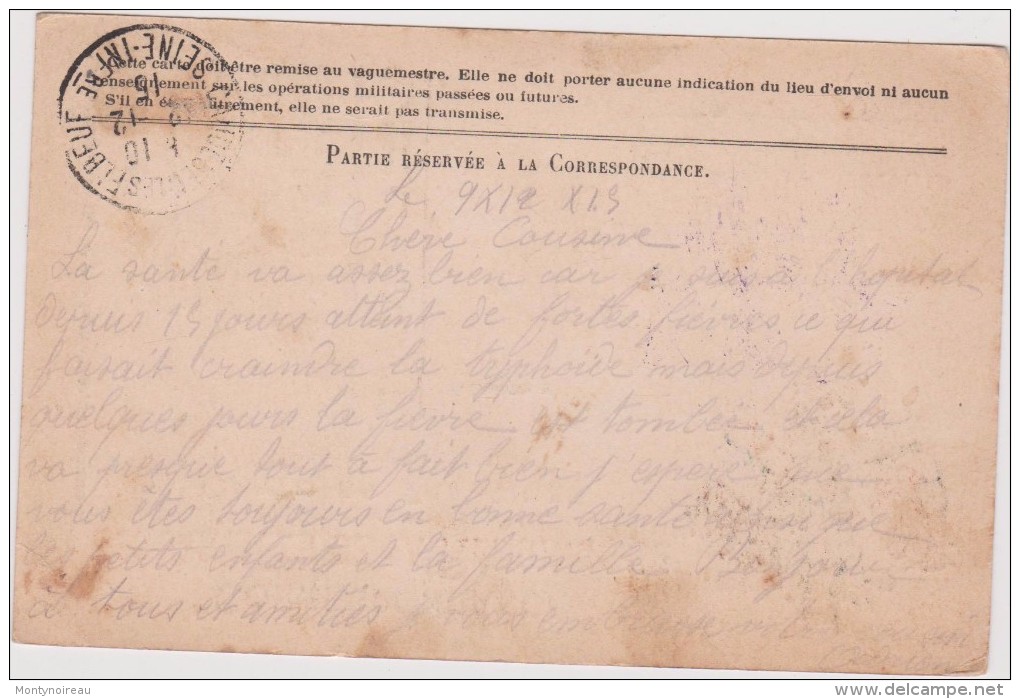 Cette carte doit être remise au vaguemestre. Elle ne doit porter aucune indication du lieu d'envoi ni aucun
renseignement sur les opérations militaires passées ou futures.
S'il en était autrement, elle ne serait pas transmise.
SEINE-INFRE
PARTIE RÉSERVÉE À LA CORRESPONDANCE.
Le 9 X 12 X 15
Chère Cousine
La sante va assez bien car je suis à l'hopital
depuis 15 jours attent de fortes fièvres ce qui
faisait craindre la typhoïde mais depuis
quelques jours la fievre est tombée et cela
va presque tout à fait bien j'espere que
vous êtes toujours en bonne santé ainsi que
les petits enfants et la famille. Bonjour
à tous et amitiés je vous embrasse
Montynoireau
delcampe.net